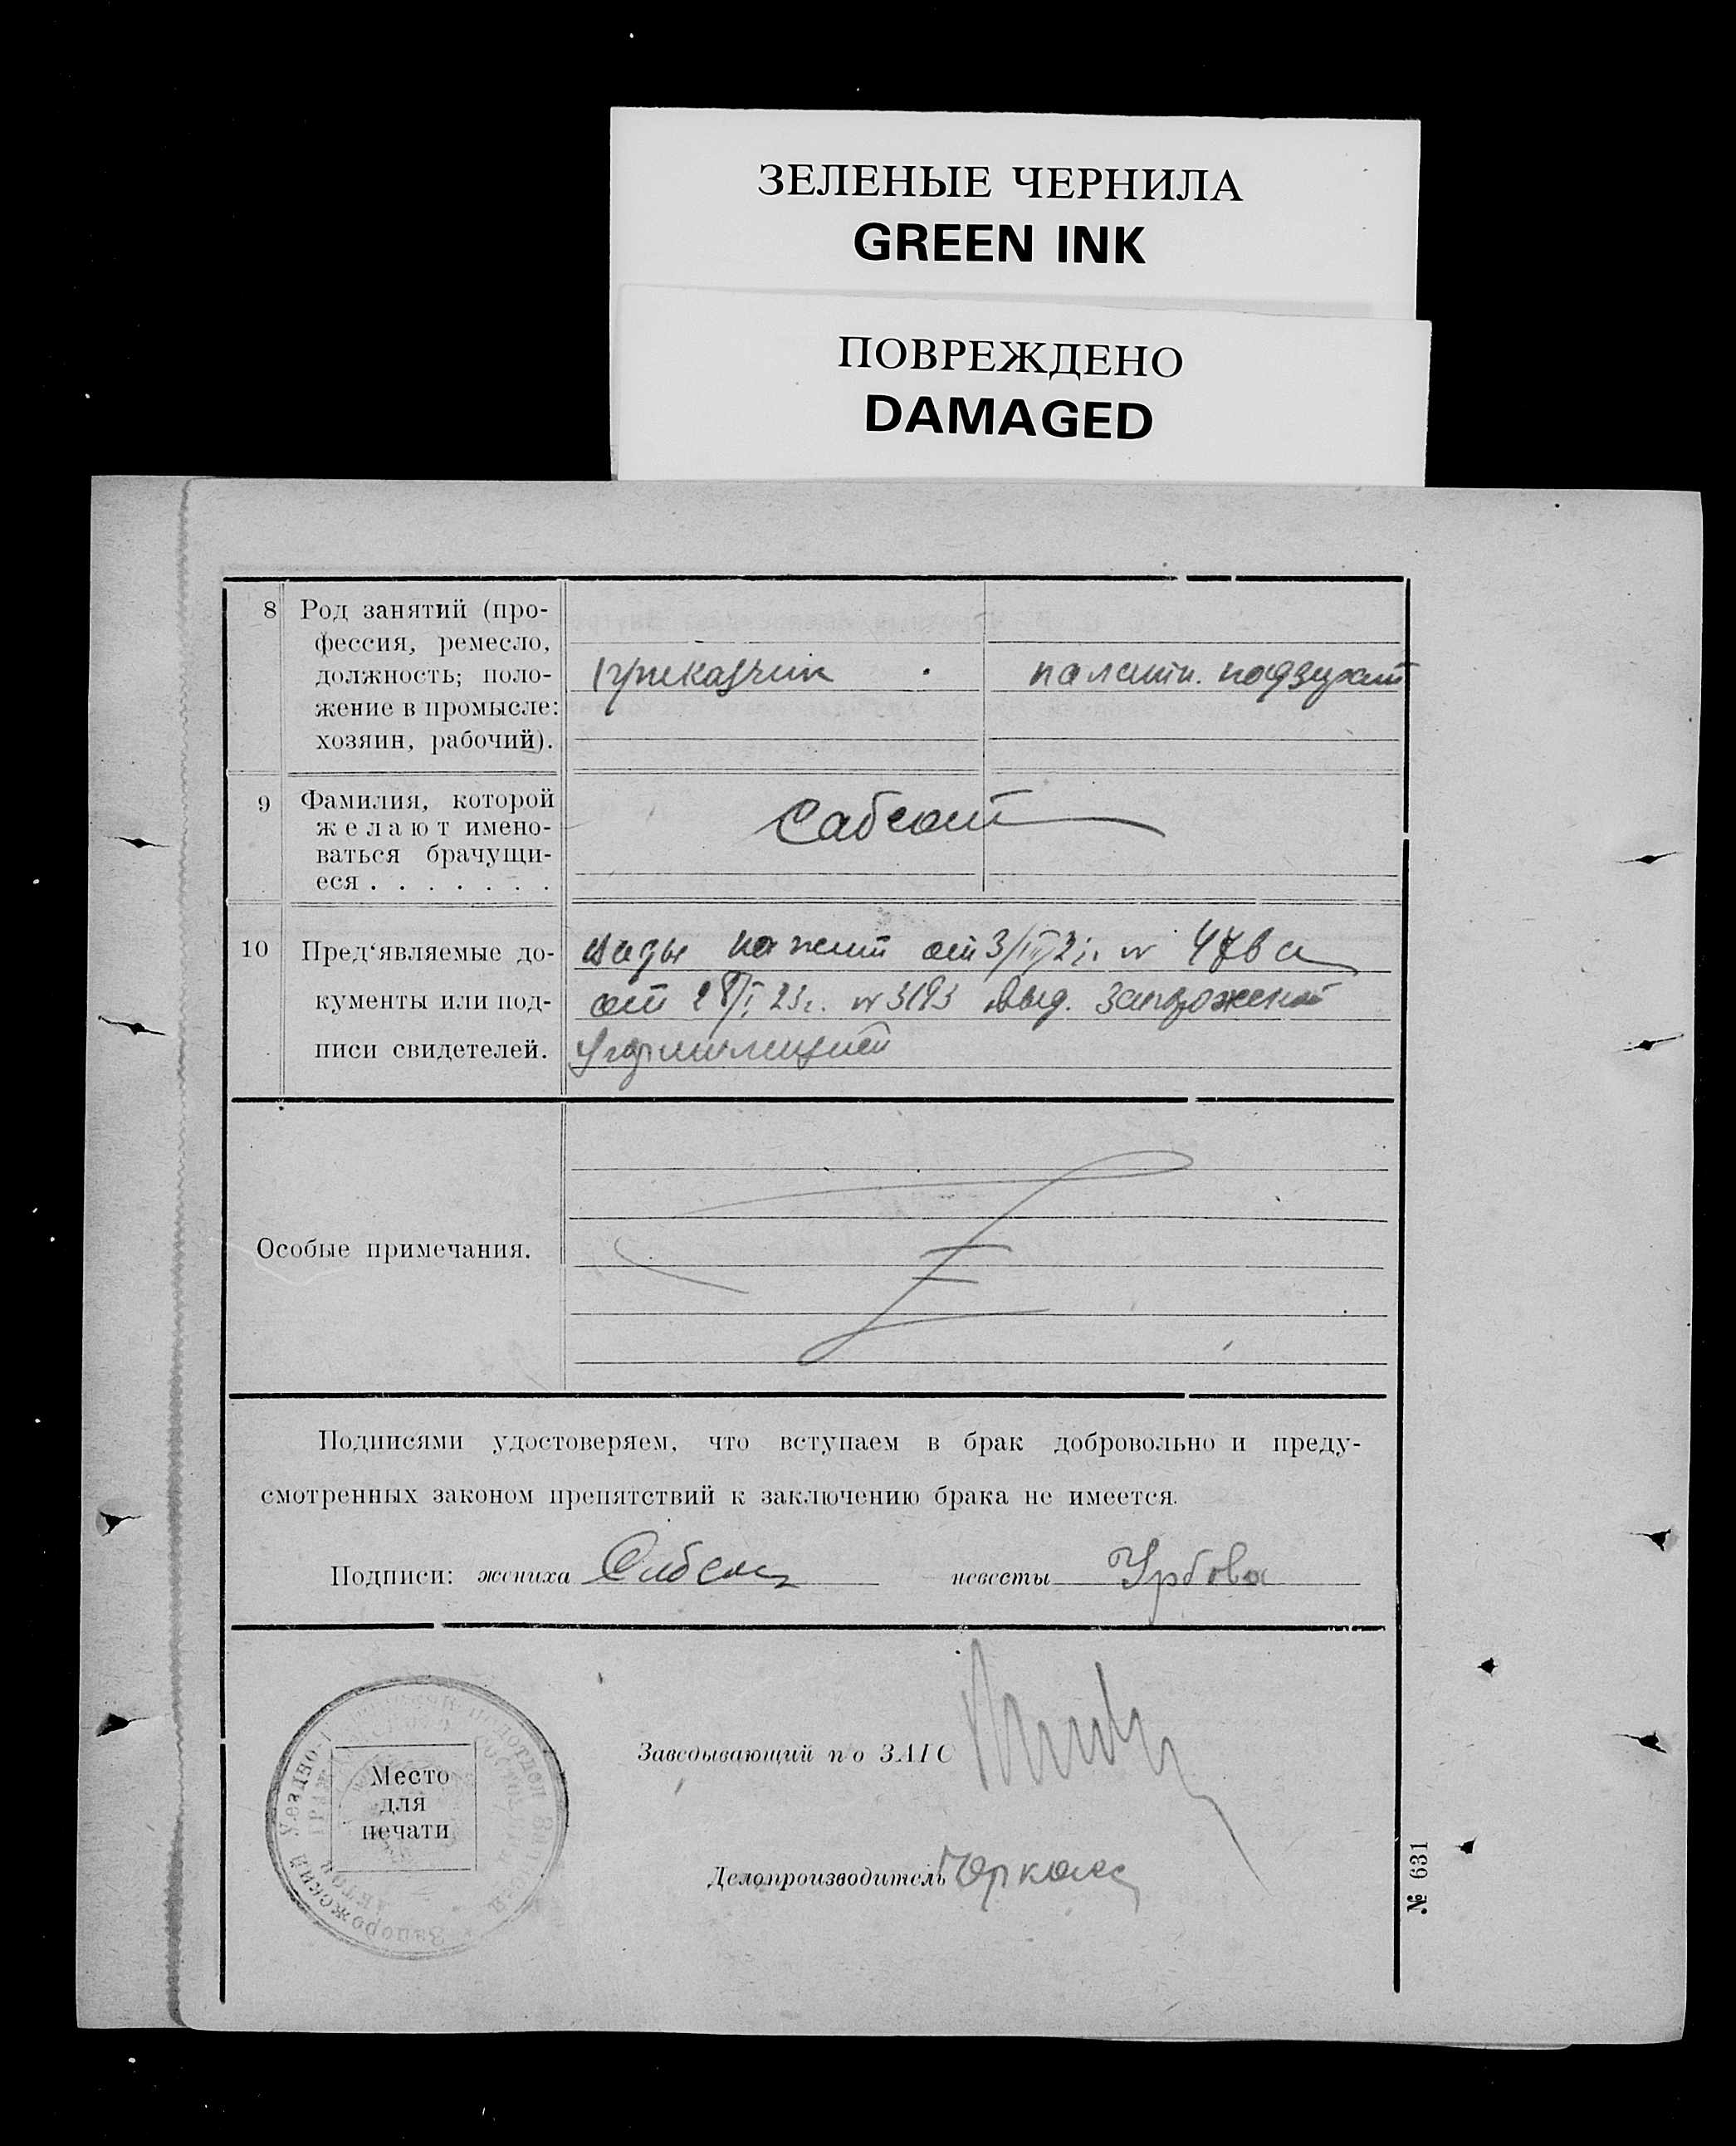 ЗЕЛЕНЫЕ ЧЕРНИЛА
GREEN INK
ПОВРЕЖДЕНО
DAMAGED
8 Род занятий (про-
фессия, ремесло,
должность; поло-
жение в промысле:
хозяин, рабочий).
приказчик
9 Фамилия, которой
желают имено-
ваться брачущи-
еся . . . . . . .
10 Пред‘являемые до-
кументы или под-
писи свидетелей.
виды на жит от 3/
от 28/I 23г. № 3193 выд. Запорожской
Особые примечания.
Подписями удостоверяем, что вступаем в брак добровольно и преду-
смотренных законом препятствий к заключению брака не имеется.
Подписи: жениха невесты Урбова
Место
для
печати
Заведывающий по ЗАГС
Делопроизводитель
№ 631